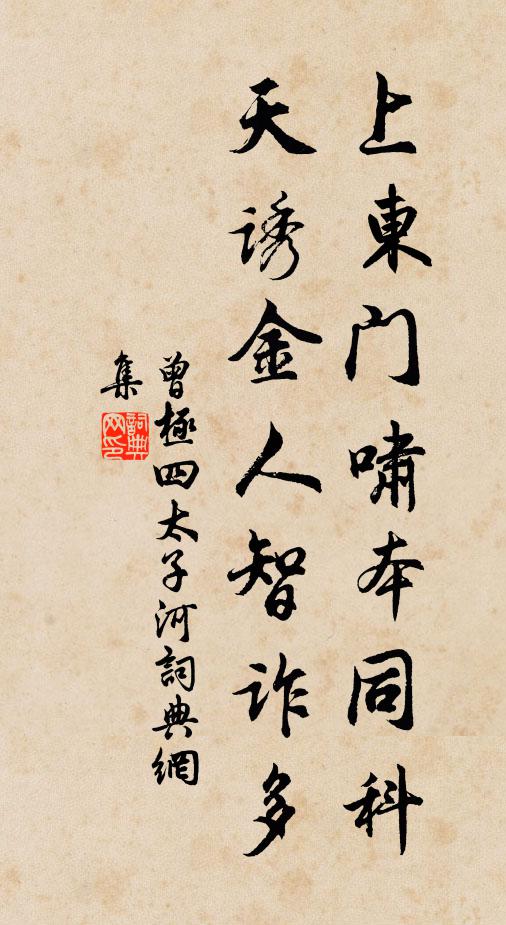 上東门嘯本同科
天诱金人智诈多
曾極四太子河詞典網
集
詞典
网印